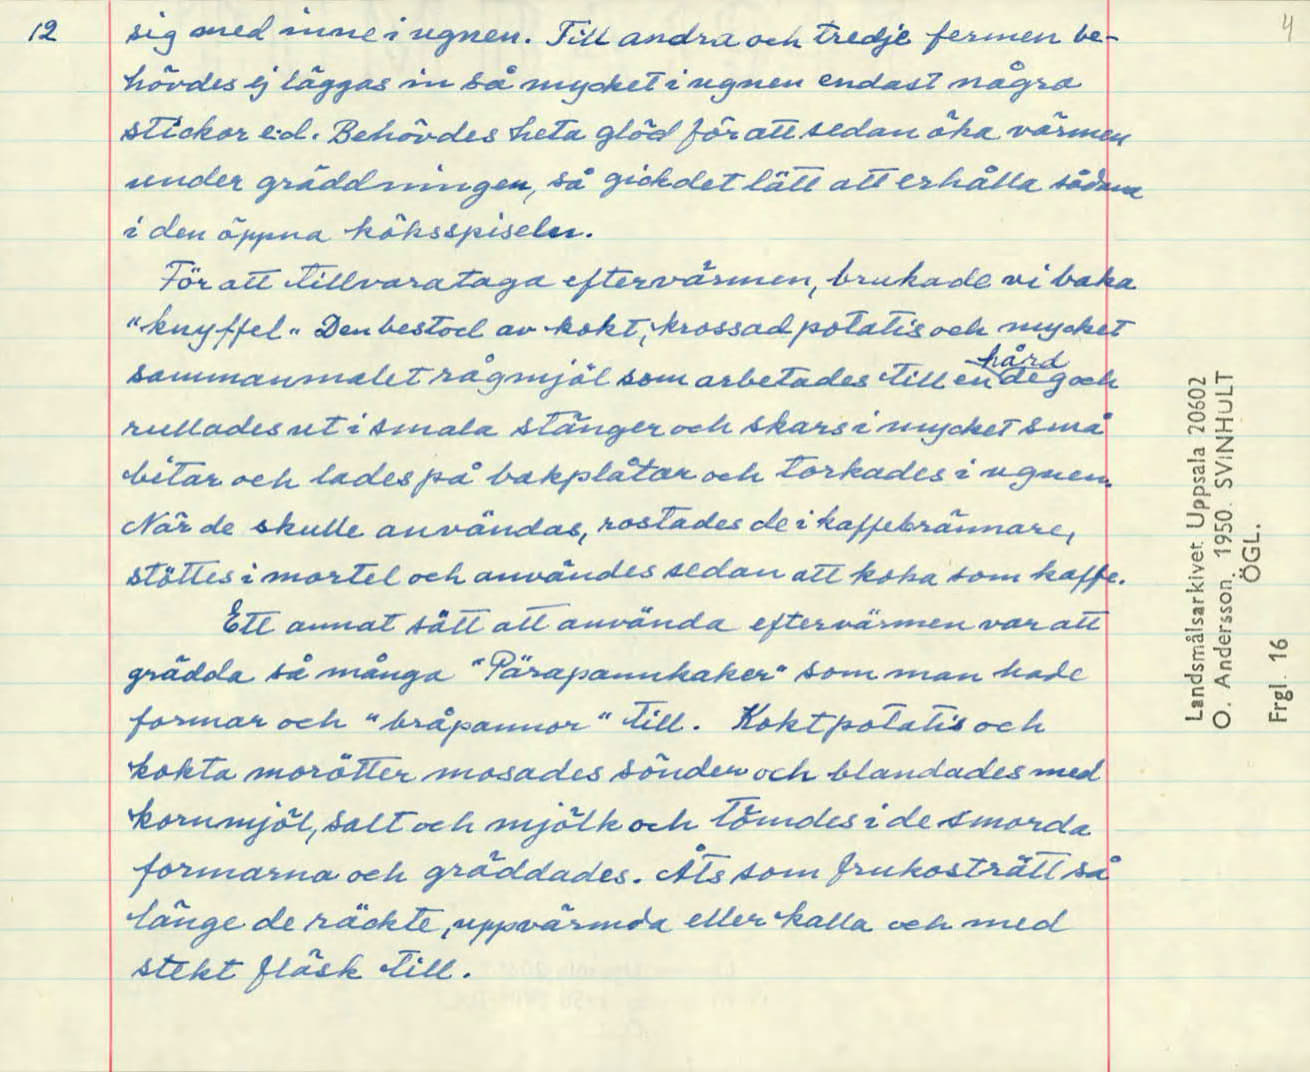 12
4
sig med inne i ugnen. Till andra och tredje fermen be-
hövdes ej läggas in så mycket i ugnen endast några
stickor e.d. Behövdes heta glöd för att sedan öka värmen
under gräddningen, så gick det lätt att erhålla sådana
i den öppna köksspiselen.
För att tillvarataga eftervärmen, brukade vi baka
"knyffel". Den bestod av kokt, krossad potatis och mycket
hård
sammanmalet rågmjöl som arbetades till en deg och
rullades ut i smala stänger och skars i mycket små
bitar och lades på bakplåtar och torkades i ugnen.
När de skulle användas, rostades de i kaffebrännare,
stöttes i mortel och användes sedan att koka som kaffe.
Ett annat sätt att använda eftervärmen var att
grädda så många "Pärapannkaker" som man hade
formar och "bråpannor" till. Kokt potatis och
kokta morötter mosades sönder och blandades med
kornmjöl, salt och mjölk och tömdes i de smorda
formarna och gräddades. Åts som frukosträtt så
länge de räckte, uppvärmda eller kalla och med
stekt fläsk till.
Landsmålsarkivet Uppsala 20602
O. Andersson. 1950. SVINHULT
ÖGL.
Frgl. 16